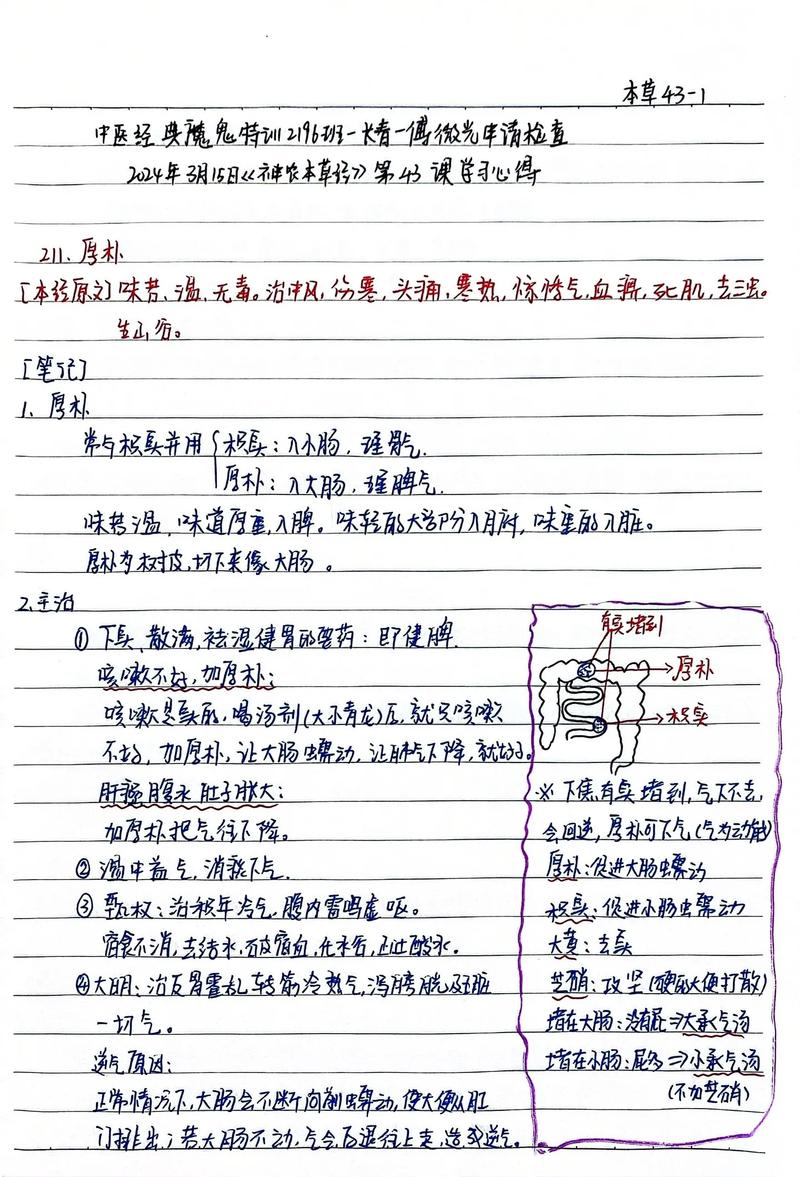 本草43-1
中医经典魔鬼特训2196班-长青-傅微光申请检查
2024年3月15日《神农本草经》第43课学习心得
211、厚朴
[本经原文]味苦、温、无毒。治中风,伤寒,头痛,寒热,惊悸气,血痹,死肌,去三虫。
生山谷。
[笔记]
1、厚朴
常与枳实并用
枳实:入小肠,理胃气.
厚朴:入大肠,理脾气.
味苦温,味道厚重,入脾。味轻的大部分入府,味重的入脏。
厚朴为树皮,切下来像大肠。
2、主治
① 下实、散满,祛湿健胃的要药:即健脾.
咳嗽不好,加厚朴:
咳嗽是实的,喝汤剂(大小青龙)后,就只咳嗽
不好,加厚朴,让大肠蠕动,让肺气下降,就好了。
肝癌腹水肚子胀大:
加厚朴把气往下降。
② 温中益气,消痰下气.
③ 甄权:治积年冷气,腹内雷鸣虚呕。
宿食不消,去结水,破宿血,化水谷,止吐酸水。
④大明:治反胃霍乱转筋冷热气,泻膀胱及五脏
一切气。
逆气原因:
正常情况下,大肠会不断向前蠕动,使大便从肛
门排出;若大肠不动,气会后退往上走,造成逆气。
实堵到
厚朴
枳实
※ 下焦有实堵到,气下不去,
会回逆,厚朴可下气(气为动能)
厚朴:促进大肠蠕动
枳实:促进小肠蠕动
大黄:去实
芒硝:攻坚(硬的大便打散)
堵在大肠:没有屁⇒大承气汤
堵在小肠:屁多⇒小承气汤
(不加芒硝)